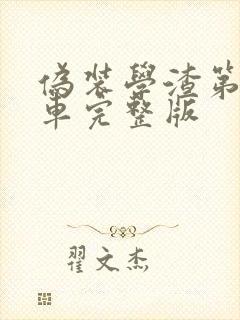 偽裝學渣第
車完整版
翟文杰